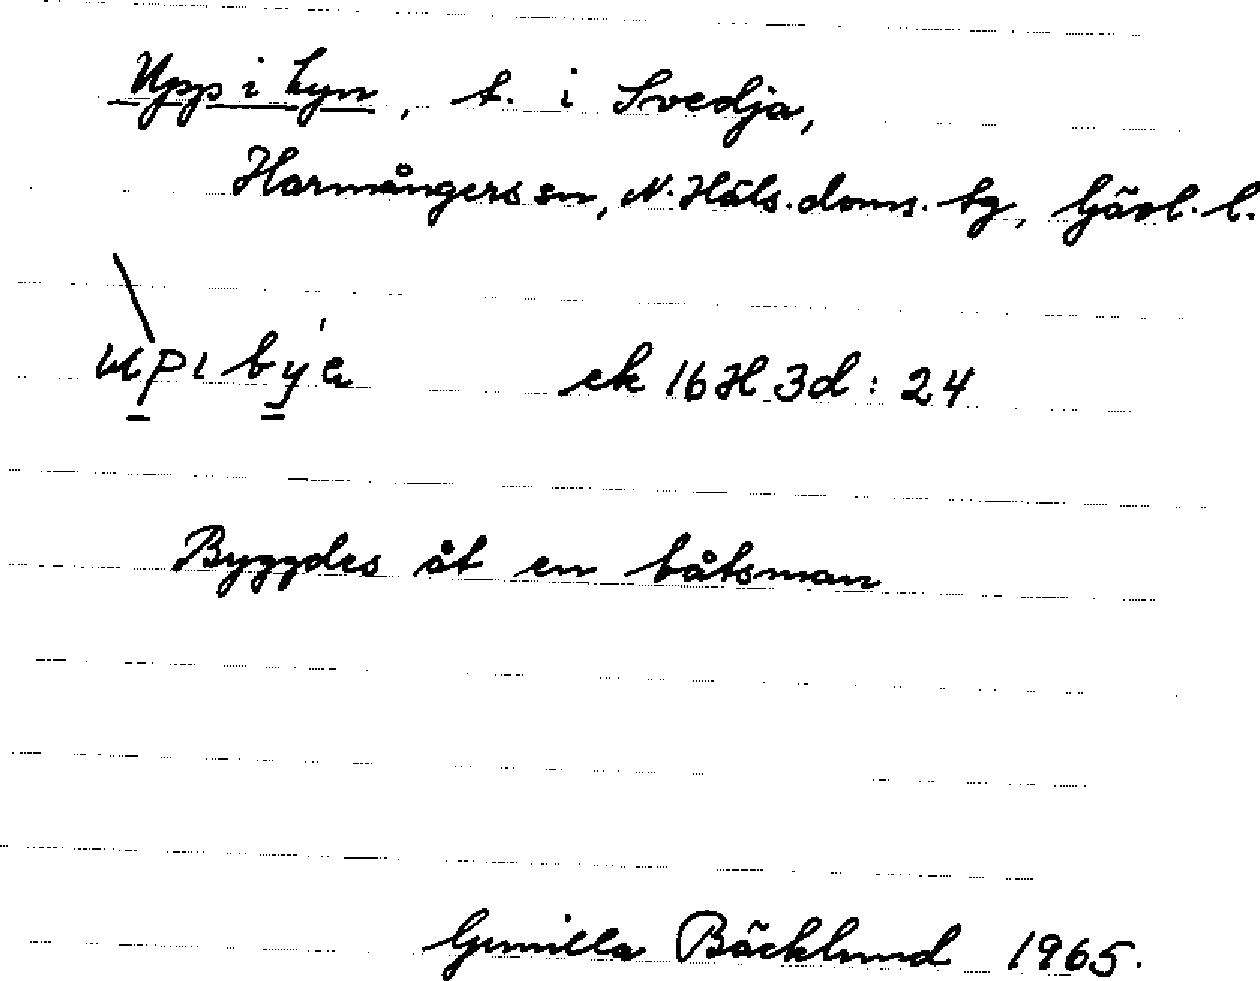 Upp i byn, t. i Svedja,
Harmångers sn, N. Häls. doms. tg, Gävl. l.
upi býa ek 16H 3d: 24
Byggdes åt en båtsman
Gunilla Bäcklund 1965.